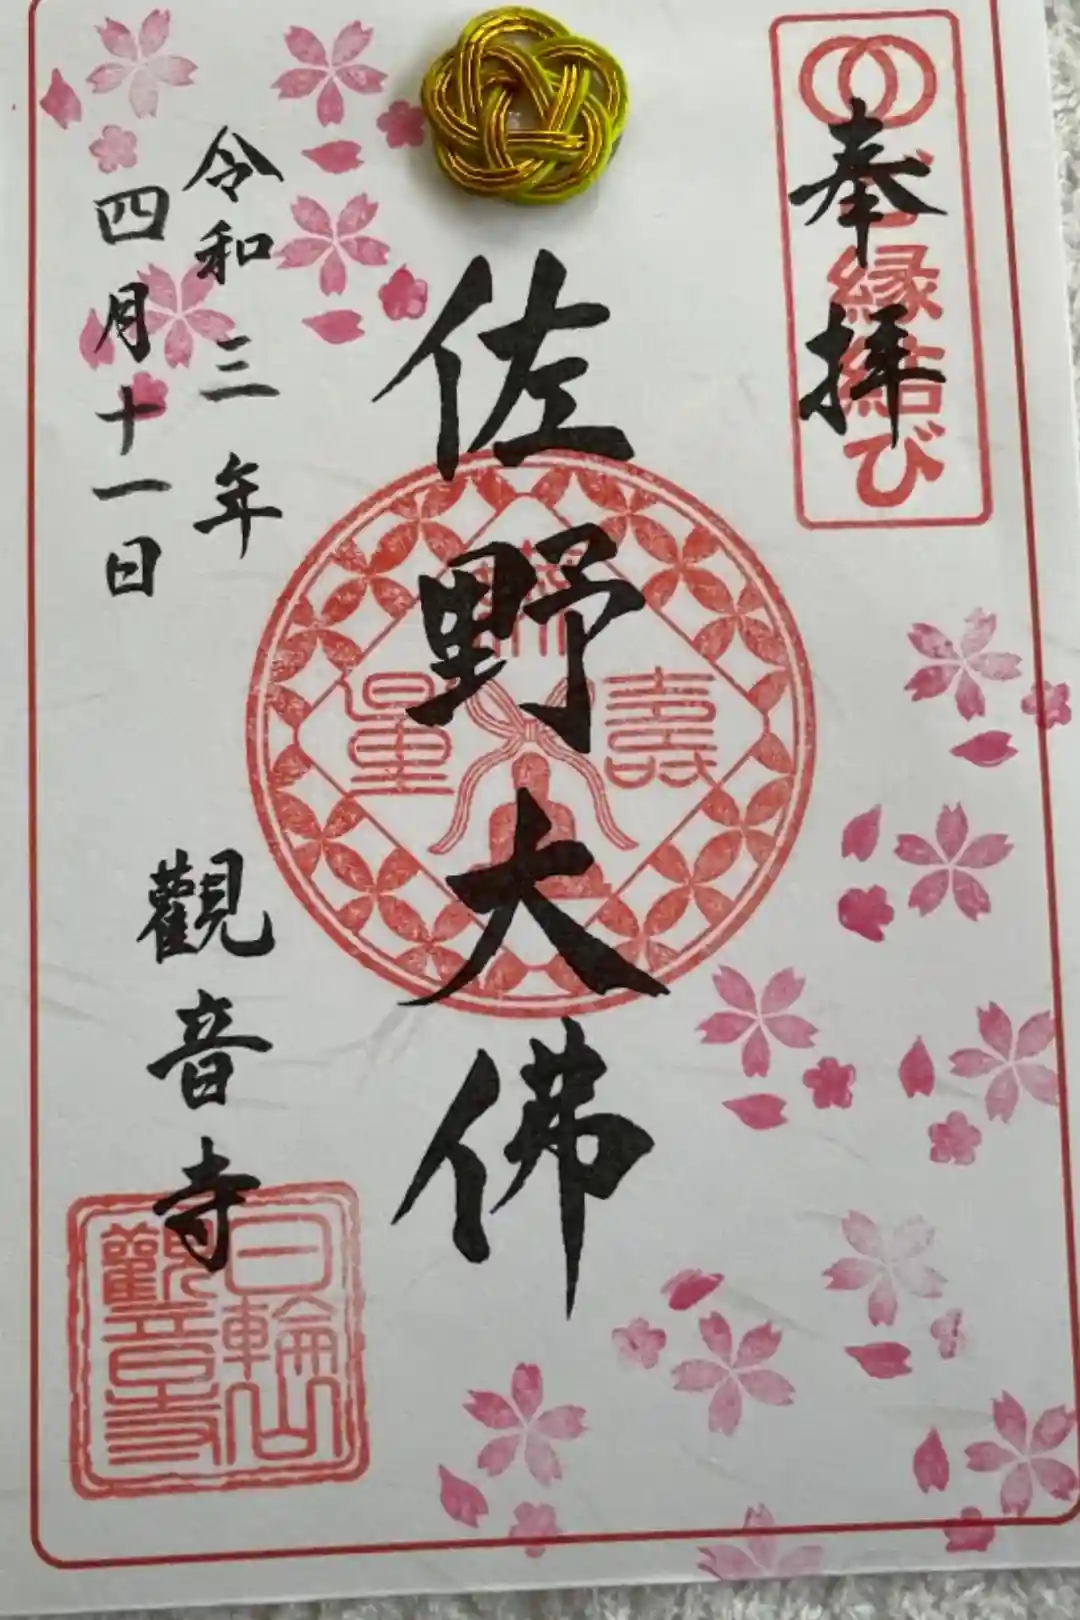 奉拝
ご縁結び
佐野大佛
無
壽
量
令和三年
四月十一日
觀音寺
日輪山
觀音寺